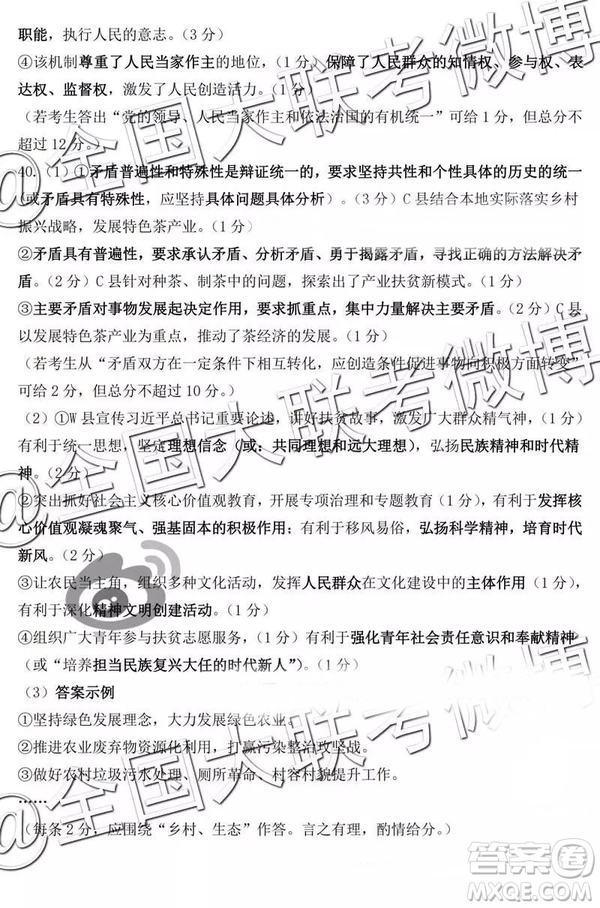 职能，执行人民的意志。（3 分）
④该机制尊重了人民当家作主的地位，（1 分）保障了人民群众的知情权、参与权、表
达权、监督权，激发了人民创造活力。（1 分）
（若考生答出“党的领导、人民当家作主和依法治国的有机统一”可给 1 分，但总分不
超过 12 分。）
40.（1）①矛盾普遍性和特殊性是辩证统一的，要求坚持共性和个性具体的历史的统一
（或矛盾具有特殊性，应坚持具体问题具体分析）。（3 分）C 县结合本地实际落实乡村
振兴战略，发展特色茶产业。（1 分）
②矛盾具有普遍性，要求承认矛盾、分析矛盾、勇于揭露矛盾，寻找正确的方法解决矛
盾。（2 分）C 县针对种茶、制茶中的问题，探索出了产业扶贫新模式。（1 分）
③主要矛盾对事物发展起决定作用，要求抓重点，集中力量解决主要矛盾。（2 分）C 县
以发展特色茶产业为重点，推动了茶经济的发展。（1 分）
（若考生从“矛盾双方在一定条件下相互转化，应创造条件促进事物向积极方面转变”
可给 2 分，但总分不超过 10 分。）
（2）①W 县宣传习近平总书记重要论述，讲好扶贫故事，激发广大群众精气神，（1 分）
有利于统一思想，坚定理想信念（或：共同理想和远大理想），弘扬民族精神和时代精
神。（2 分）
②突出抓好社会主义核心价值观教育，开展专项治理和专题教育（1 分）有利于发挥核
心价值观凝魂聚气、强基固本的积极作用；有利于移风易俗，弘扬科学精神，培育时代
新风。（2 分）
③让农民当主角，组织多种文化活动，发挥人民群众在文化建设中的主体作用（1 分），
有利于深化精神文明创建活动。（1 分）
④组织广大青年参与扶贫志愿服务，（1 分）有利于强化青年社会责任意识和奉献精神
（或“培养担当民族复兴大任的时代新人”）。（1 分）
（3）答案示例
①坚持绿色发展理念，大力发展绿色农业。
②推进农业废弃物资源化利用，打赢污染整治攻坚战。
③做好农村垃圾污水处理、厕所革命、村容村貌提升工作。
……
（每条 2 分，应围绕“乡村、生态”作答。言之有理，酌情给分。）
@全国大联考微博
@全国大联考微博
@全国大联考微博
答案圈
MXQE.COM